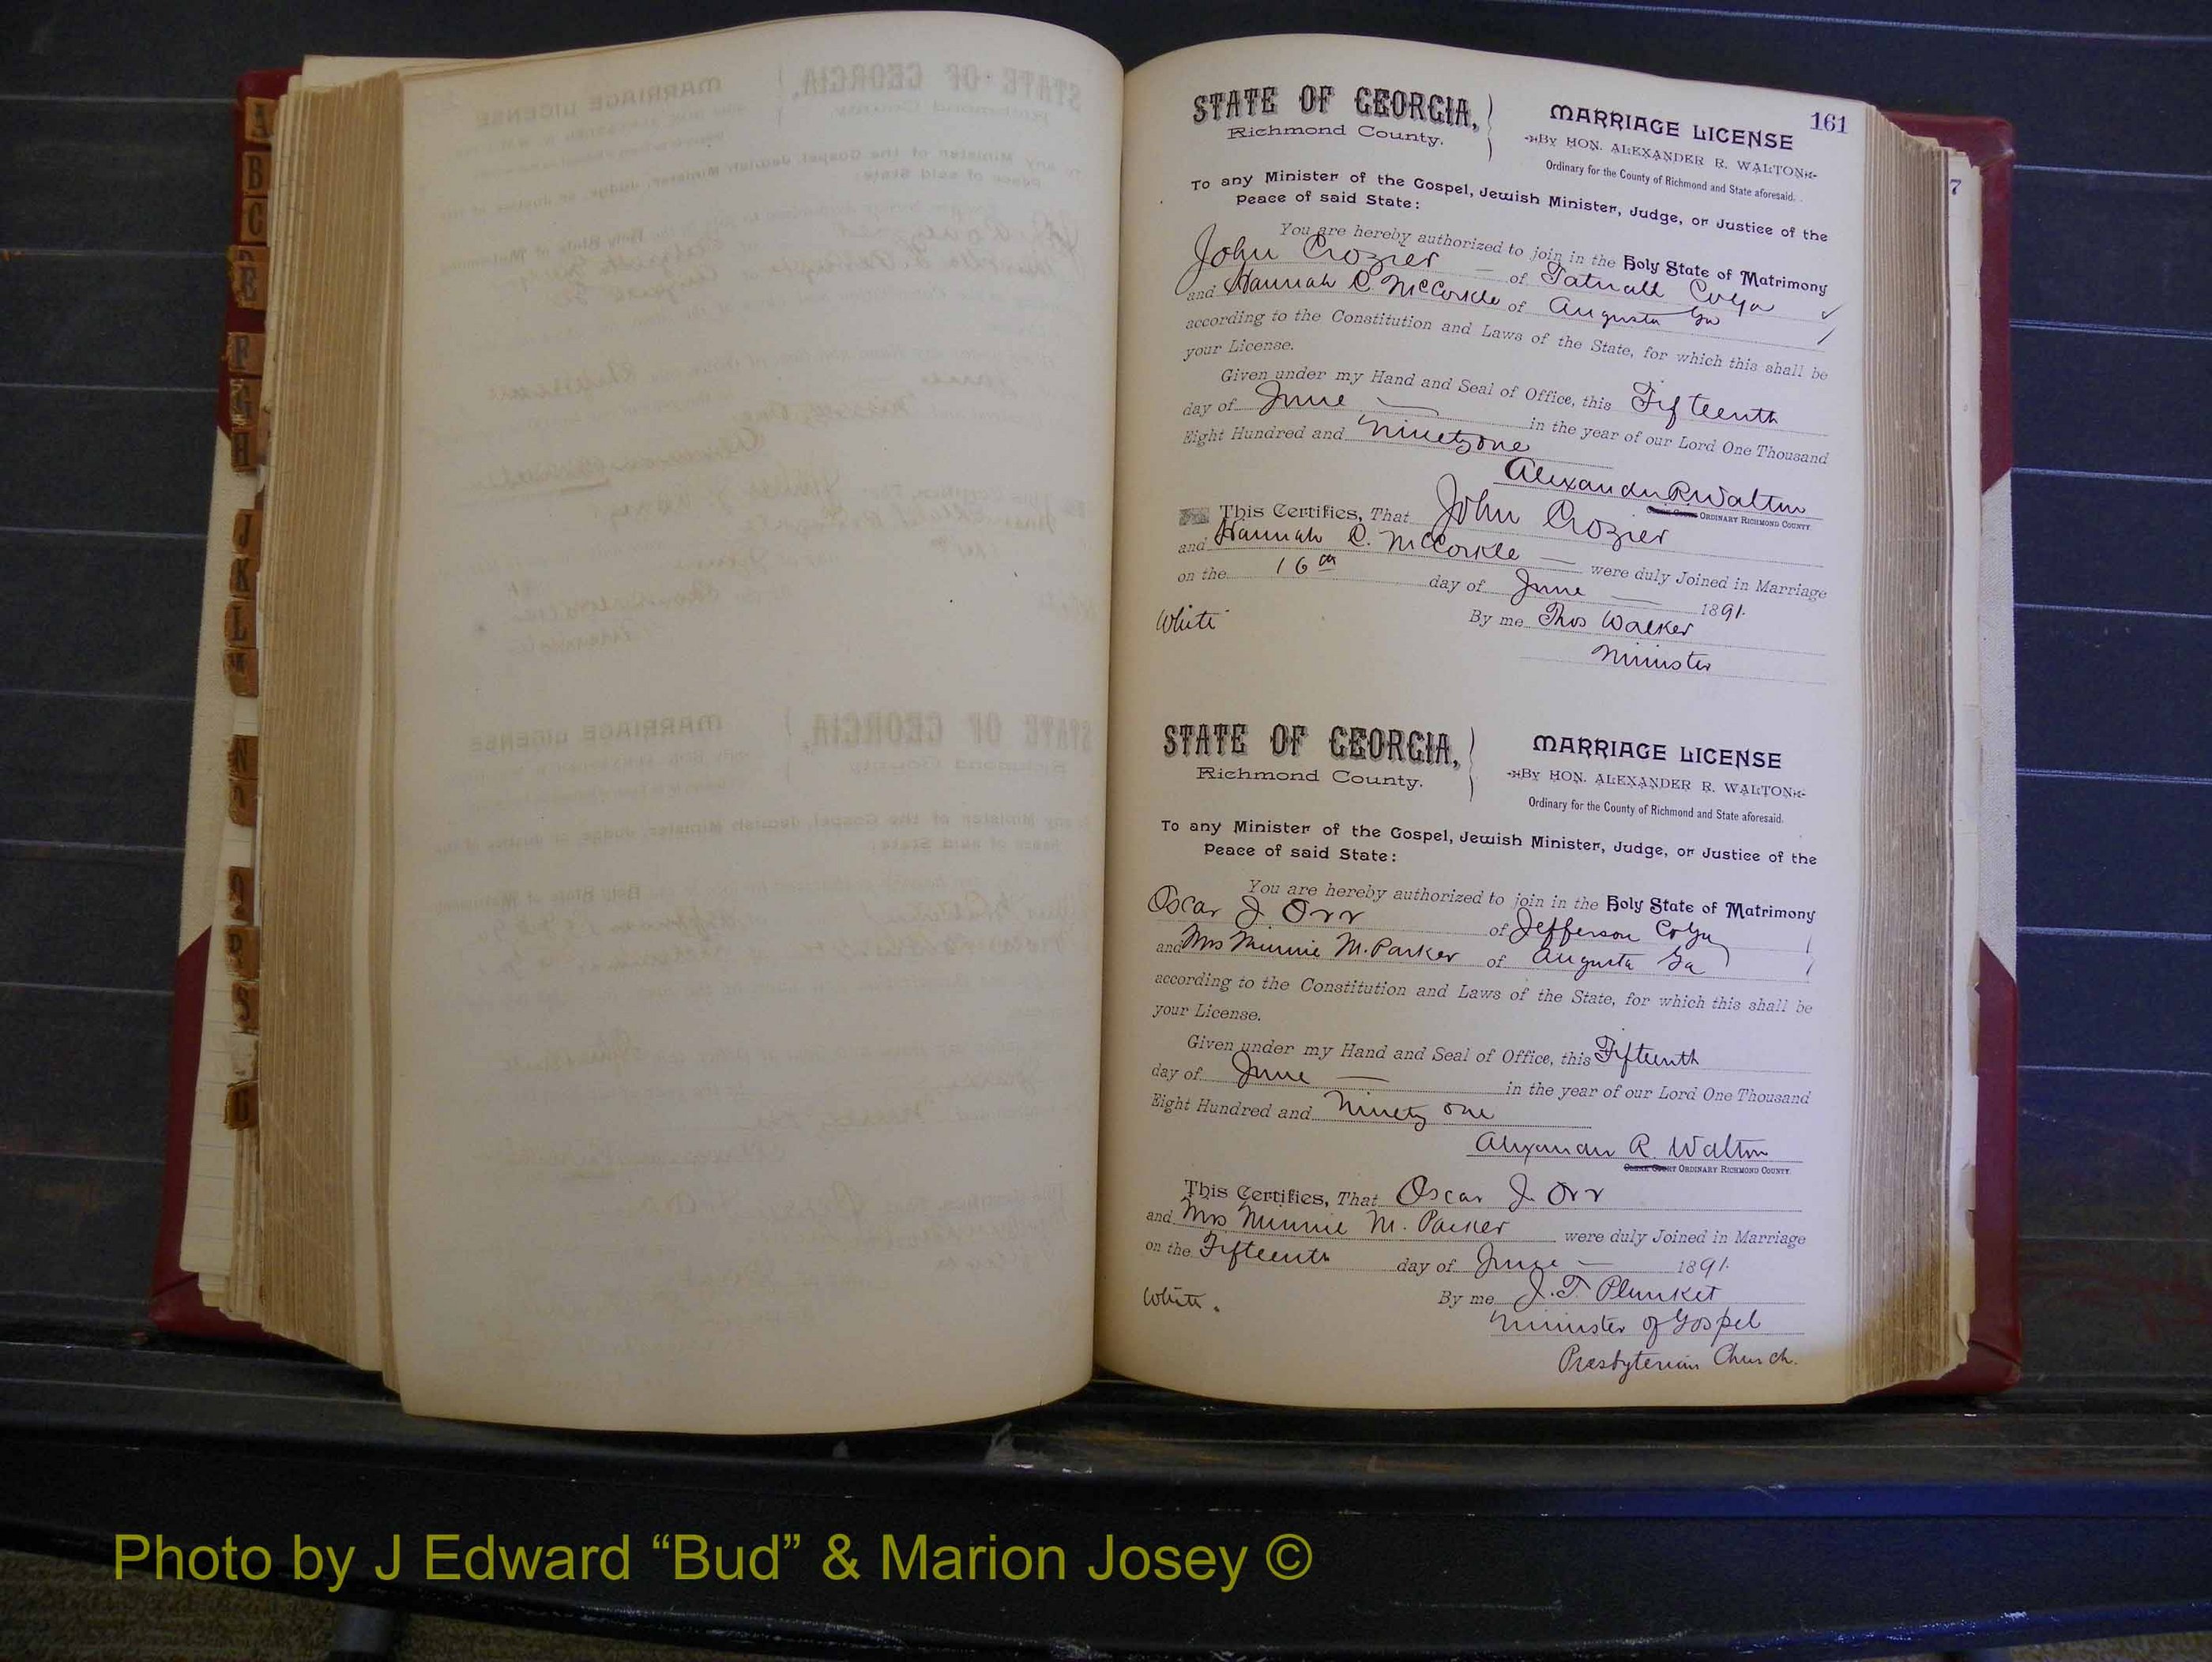 A
B
C
E
F
G
H
J
K
L
M
N
O
Q
R
S
161
7
STATE OF GEORGIA,
Richmond County.
MARRIAGE LICENSE
By HON. ALEXANDER R. WALTON
Ordinary for the County of Richmond and State aforesaid.
To any Minister of the Gospel, Jewish Minister, Judge, or Justice of the
Peace of said State:
You are hereby authorized to join in the Holy State of Matrimony
John Crozier — of Tatnall Co Ga
and Hannah C. McCorkle of Augusta Ga
according to the Constitution and Laws of the State, for which this shall be
your License.
Given under my Hand and Seal of Office, this Fifteenth
day of June — in the year of our Lord One Thousand
Eight Hundred and Ninety one
Alexander R Walton
ORDINARY RICHMOND COUNTY
This Certifies, That John Crozier
and Hannah C. McCorkle — were duly Joined in Marriage
on the 16th day of June — 1891.
White
By me Thos Walker
Minister
STATE OF GEORGIA,
Richmond County.
MARRIAGE LICENSE
By HON. ALEXANDER R. WALTON
Ordinary for the County of Richmond and State aforesaid.
To any Minister of the Gospel, Jewish Minister, Judge, or Justice of the
Peace of said State:
You are hereby authorized to join in the Holy State of Matrimony
Oscar J Orr of Jefferson Co Ga
and Mrs Minnie M. Parker of Augusta Ga
according to the Constitution and Laws of the State, for which this shall be
your License.
Given under my Hand and Seal of Office, this Fifteenth
day of June — in the year of our Lord One Thousand
Eight Hundred and Ninety one
Alexander R. Walton
ORDINARY RICHMOND COUNTY.
This Certifies, That Oscar J. Orr
and Mrs Minnie M. Parker were duly Joined in Marriage
on the Fifteenth day of June — 1891.
White.
By me J. T Plunket
Minister of Gospel
Presbyterian Church.
Photo by J Edward “Bud” & Marion Josey ©